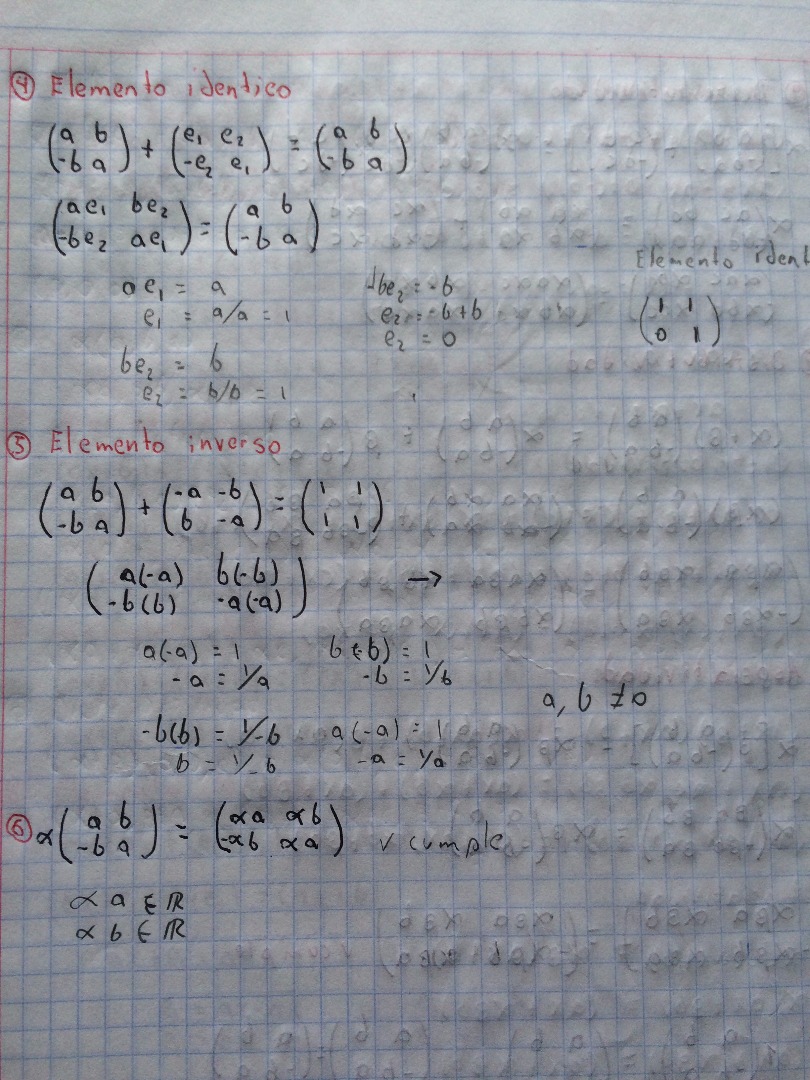 ④ Elemento identico
(a b
-b a) + (e₁ e₂
-e₂ e₁) = (a b
-b a)
(ae₁ be₂
-be₂ ae₁) = (a b
-b a)
Elemento ident
ae₁ = a
e₁ = a/a = 1
be₂ = b
e₂ = b/b = 1
be₂ = -b
e₂ = -b+b
e₂ = 0
(1 1
0 1)
⑤ Elemento inverso
(a b
-b a) + (-a -b
b -a) = (1 1
1 1)
(a(-a) b(-b)
-b(b) -a(-a)) →
a(-a) = 1
-a = 1/a
b(-b) = 1
-b = 1/b
a, b ≠ 0
-b(b) = 1/-b
b = 1/-b
a(-a) = 1
-a = 1/a
⑥ α(a b
-b a) = (αa αb
-αb αa) √ cumple
α a ∈ ℝ
α b ∈ ℝ